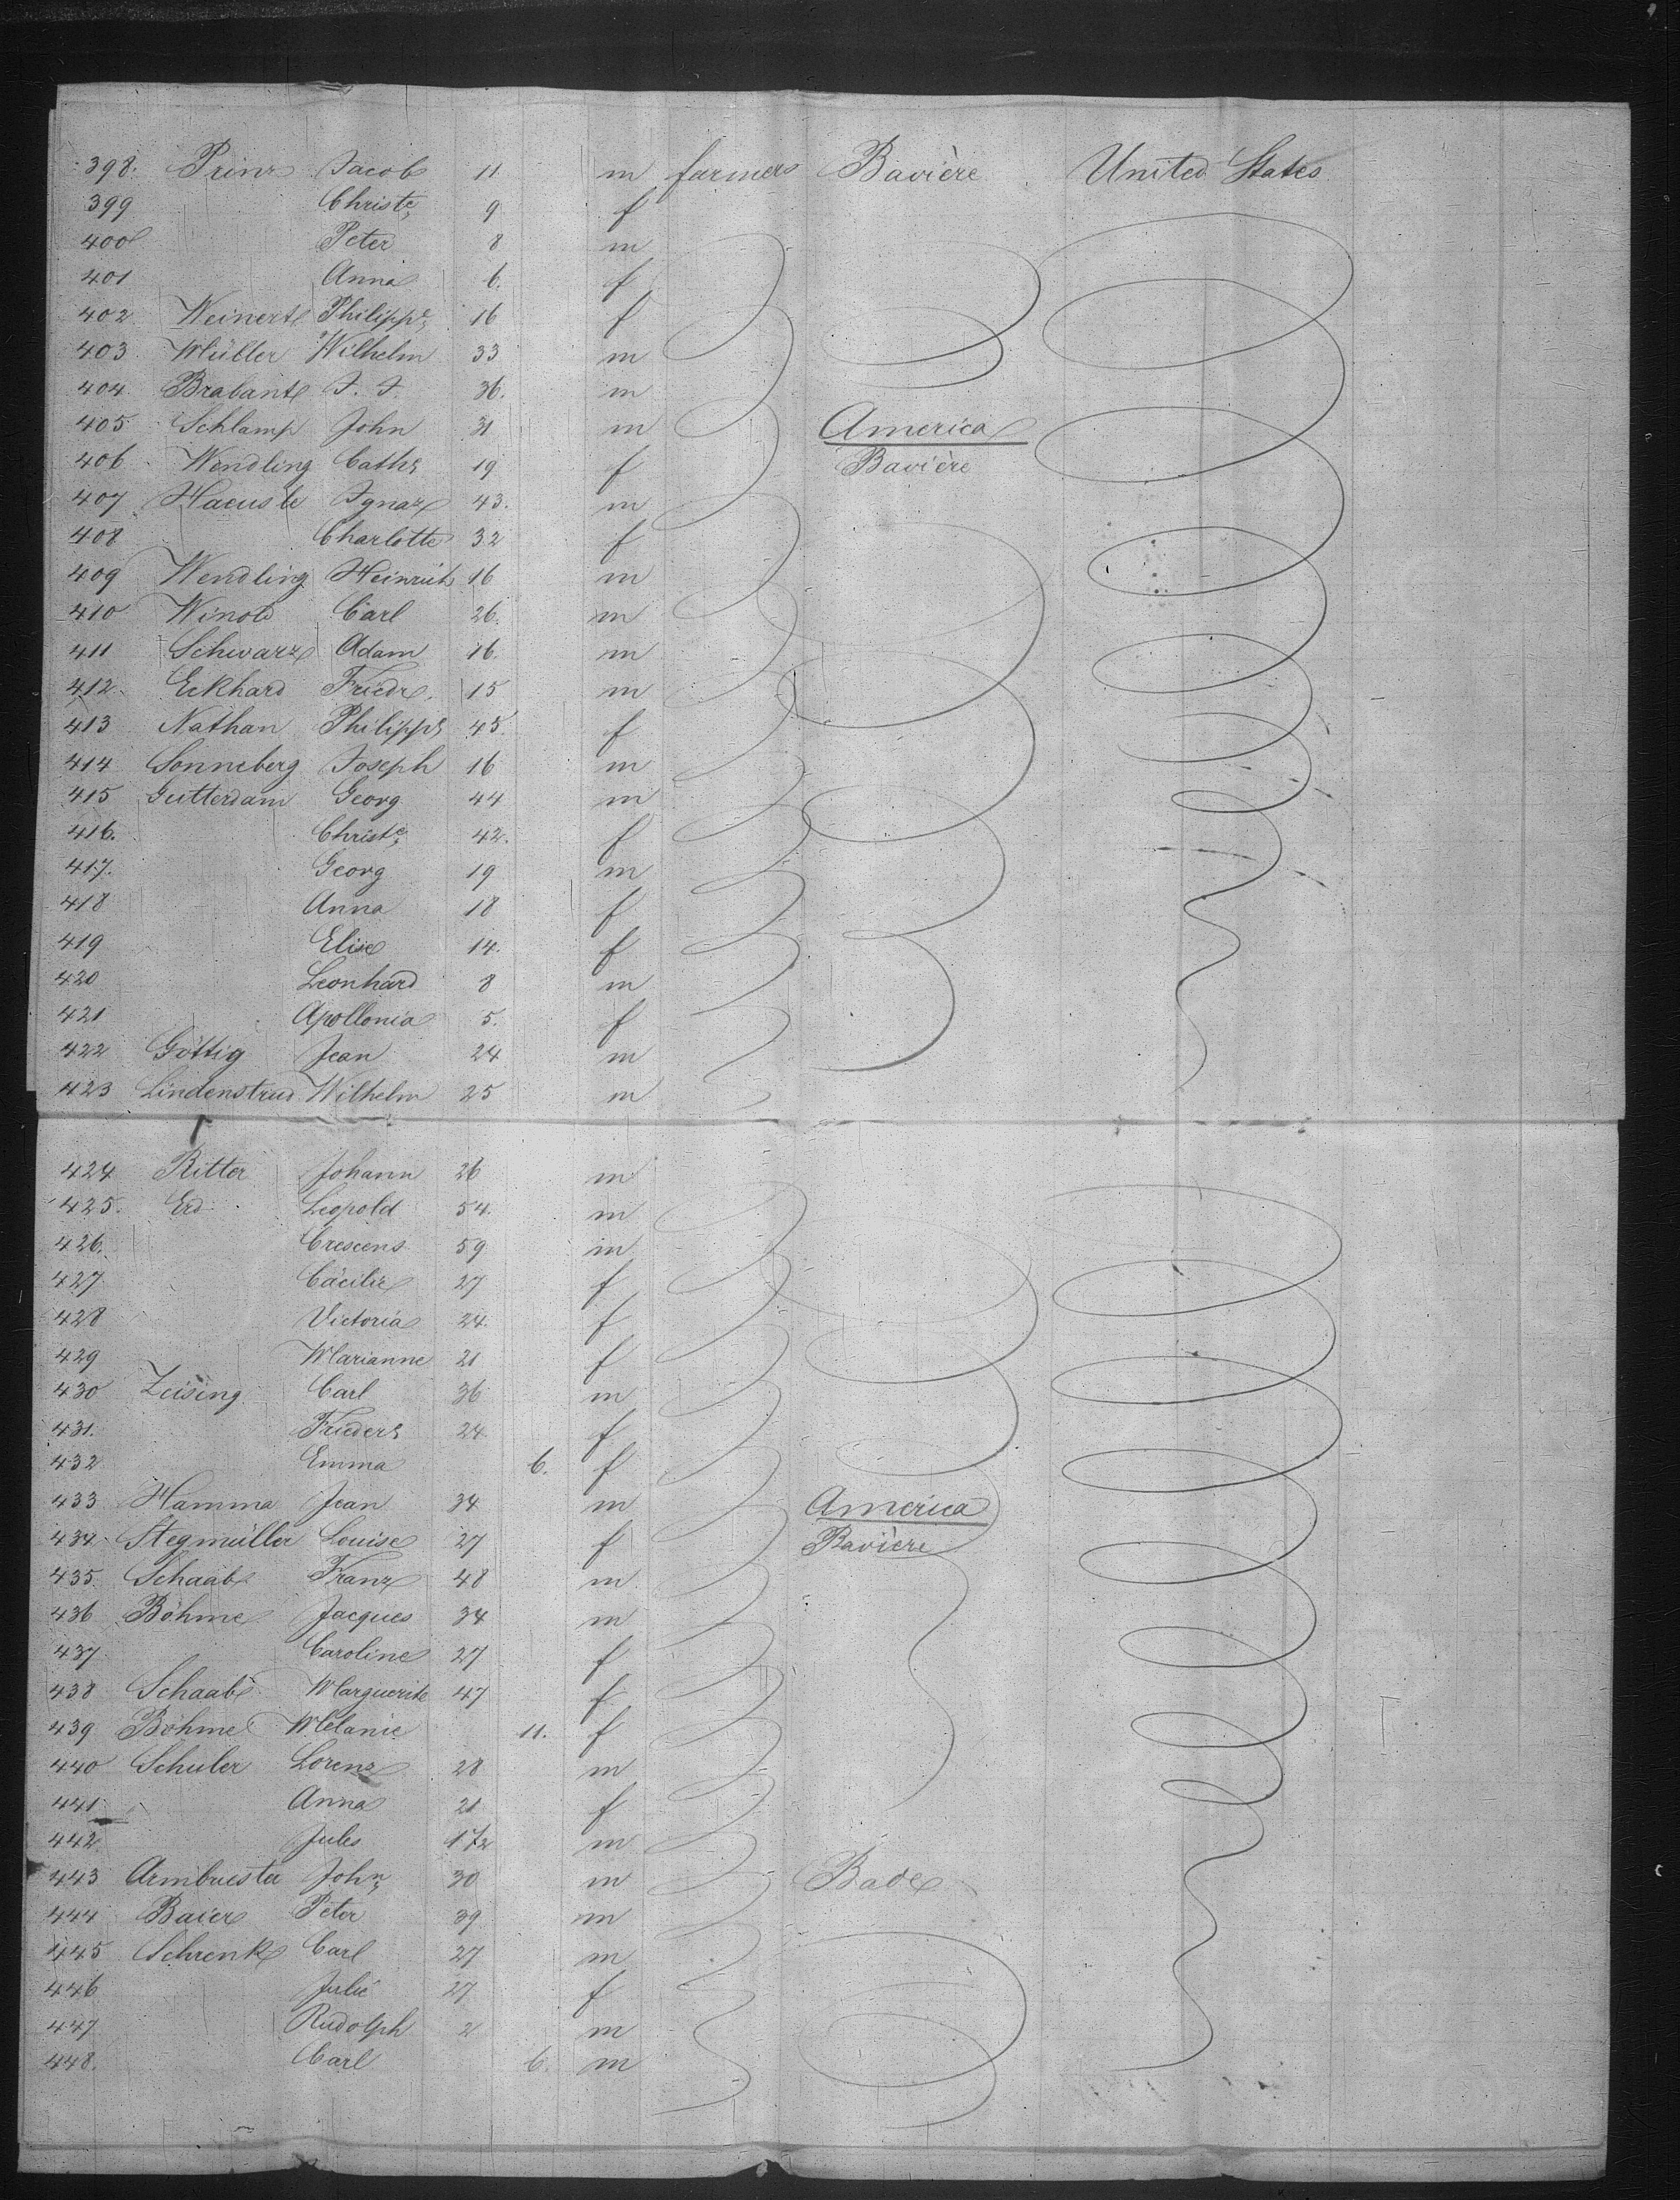 398. Prinz Jacob 11 m farmers Bavière United States
399 Christe 9 f
400 Peter 8 m
401 Anna 6. f
402 Weinert Philippe 16 f
403 Müller Wilhelm 33 m
404 Brabant J. J. 36. m
405 Schlamp John 31 m America
406 Wendling Cathe 19 f Bavière
407 Haeusle Ignaz 43. m
408 Charlotte 32 f
409 Wendling Heinrich 16 m
410 Winold Carl 26. m
411 Schwarz Adam 16. m
412. Eckhard Friedr. 15 m
413 Nathan Philippe 45. f
414 Sonneberg Joseph 16 m
415 Gutterdam Georg 44 m
416. Christe 42. f
417. Georg 19 m
418 Anna 18 f
419 Elise 14. f
420 Leonhard 8 m
421 Apollonia 5. f
422 Göttig Jean 24 m
423 Lindenstrud Wilhelm 25 m
424 Ritter Johann 26 m
425. Erd Leopold 54. m
426. Crescens 59 m
427. Cäcilie 27 f
428 Victoria 24. f
429 Marianne 21 f
430 Zeising Carl 36 m
431. Friedere 24 f
432 Emma 6. f
433 Hamma Jean 34 m America
434 Stegmüller Louise 27 f Bavière
435. Schaab Franz 48 m
436 Böhme Jacques 34 m
437 Caroline 27 f
438 Schaab Marguerite 47 f
439 Böhme Melanie 11. f
440 Schuler Lorenz 28 m
441 Anna 21 f
442 Jules 1 1/2 m
443 Armbruester John 30 m Bade
444 Baier Peter 39 m
445 Schrenk Carl 27 m
446 Julie 27 f
447 Rudolph 2 m
448. Carl 6. m